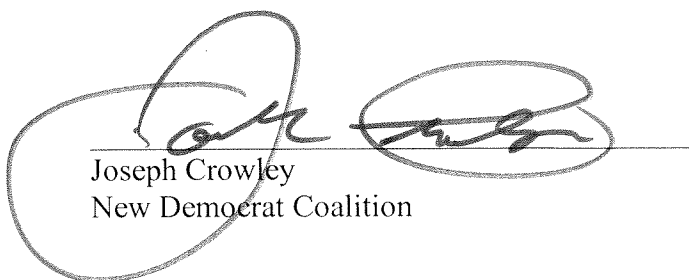 Joseph Crowley
New Democrat Coalition